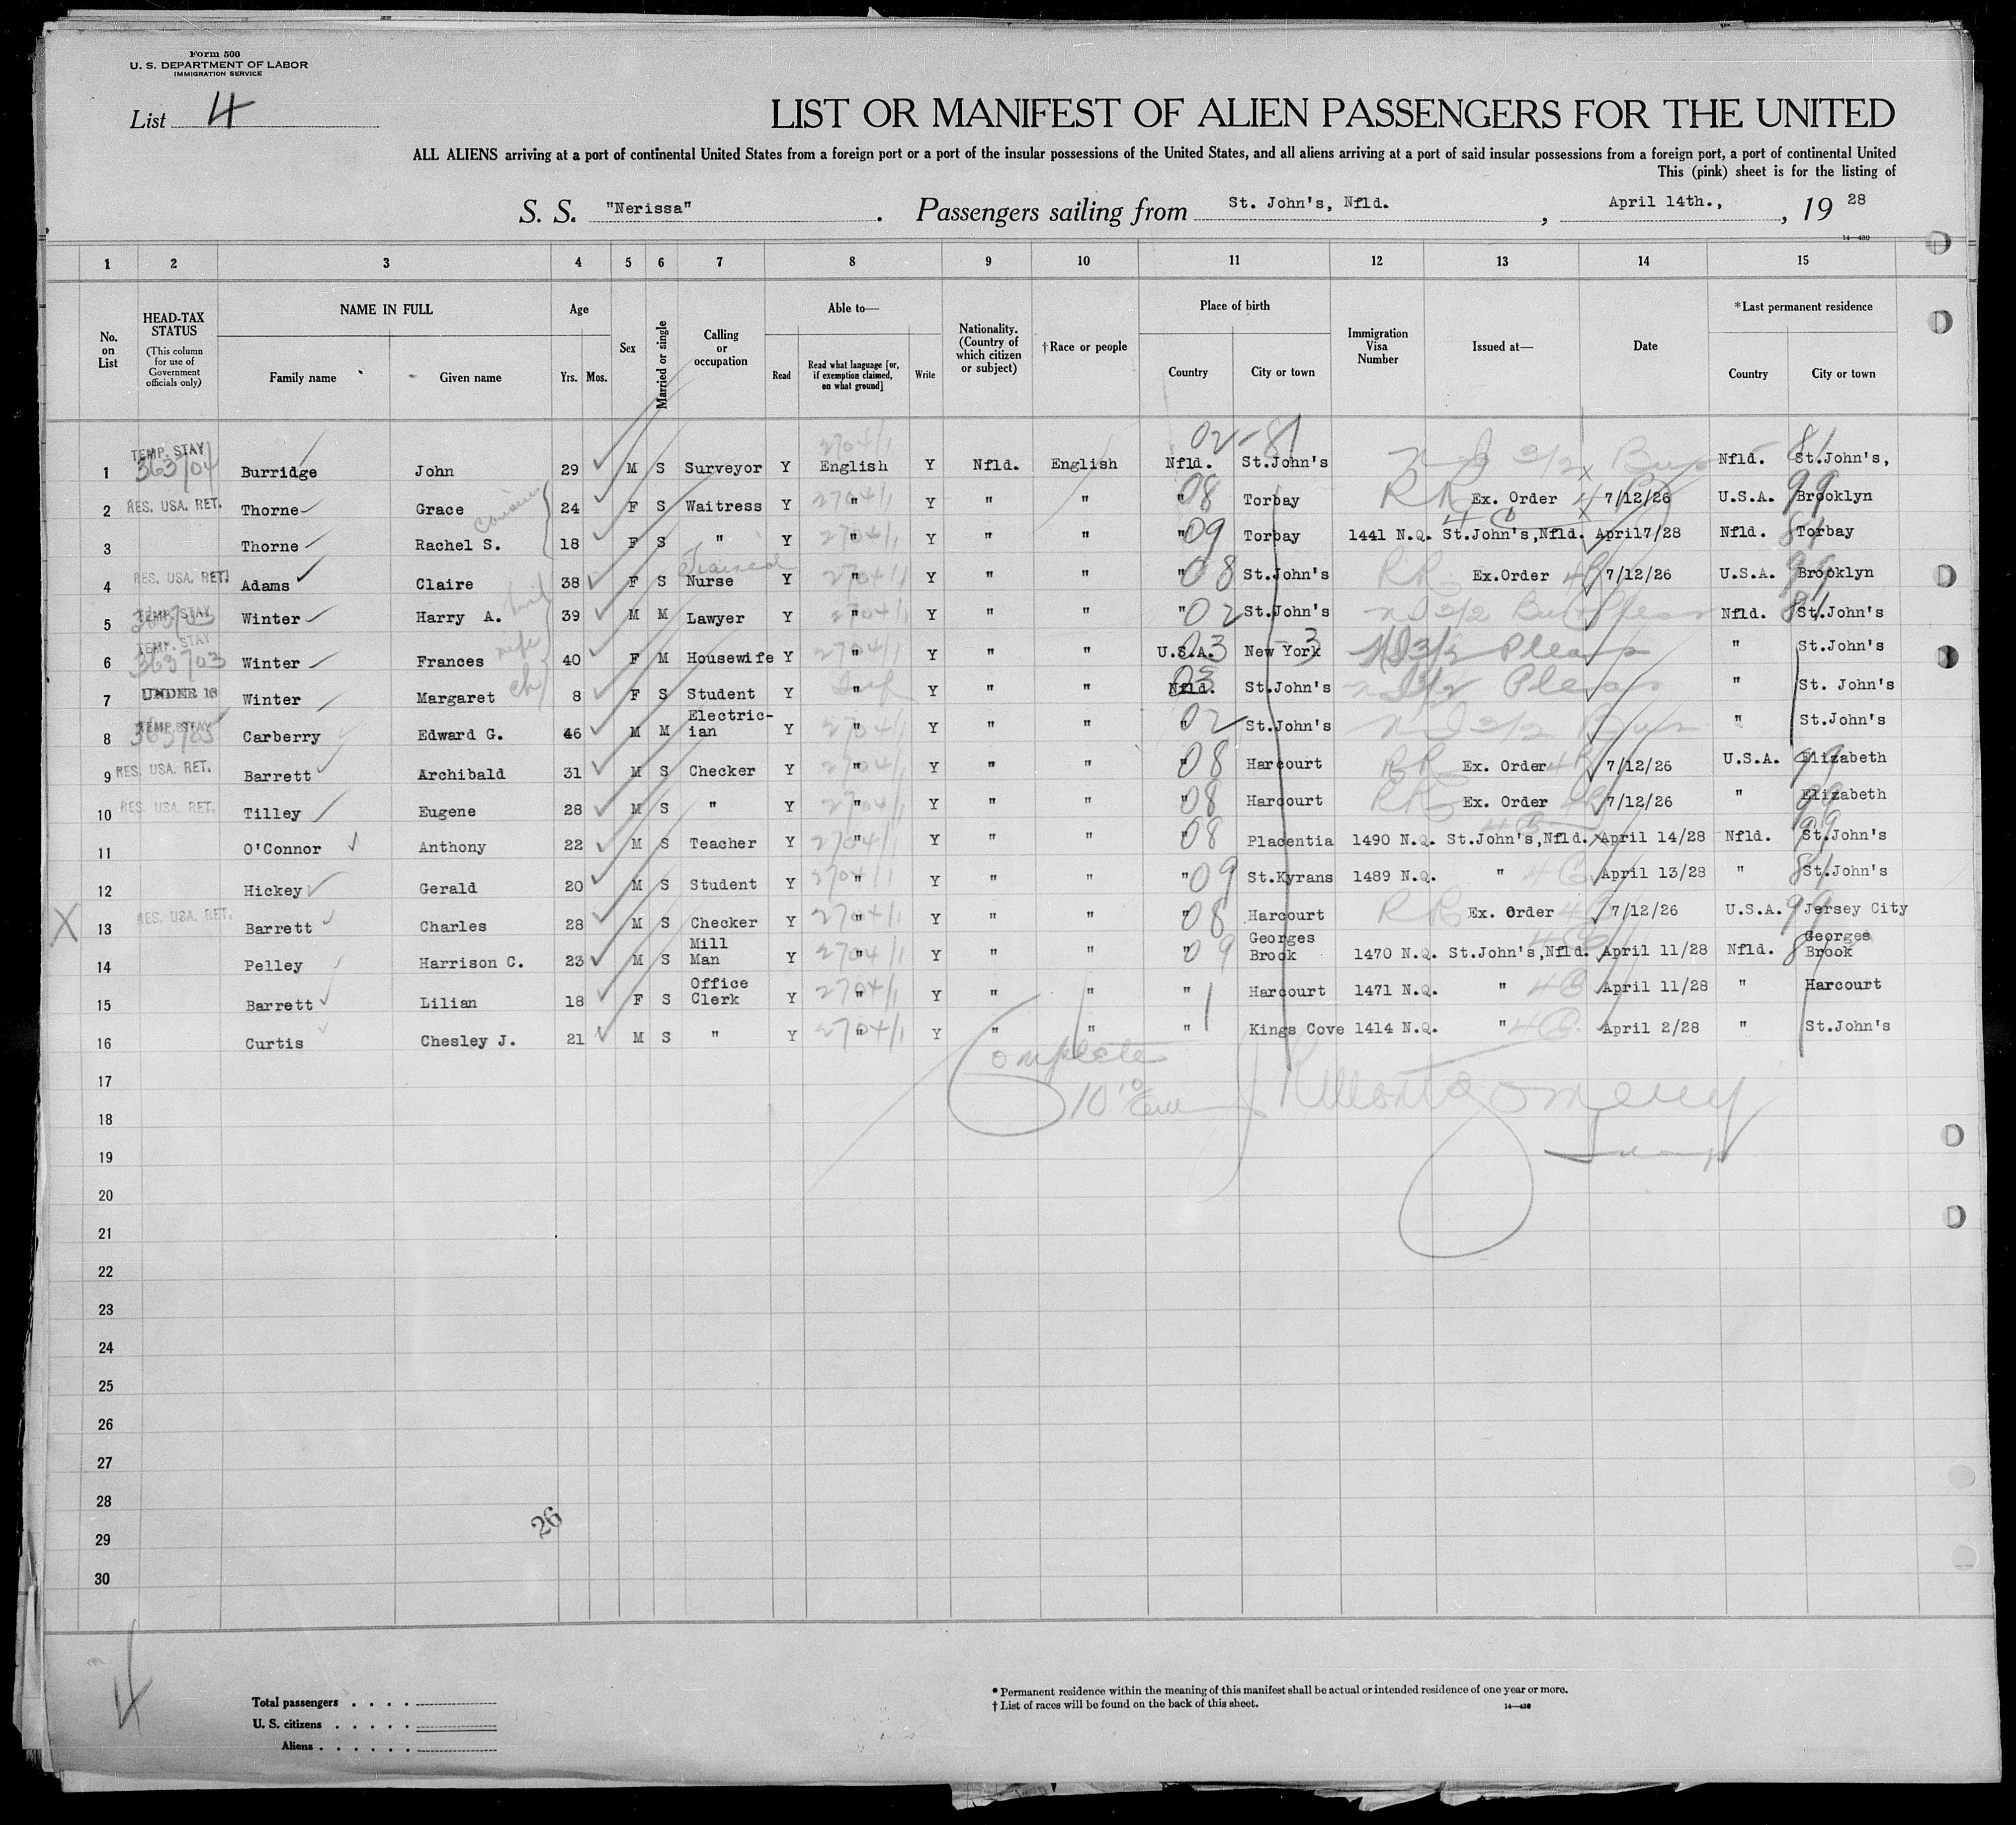 Form 500
U. S. DEPARTMENT OF LABOR
IMMIGRATION SERVICE
List 4
LIST OR MANIFEST OF ALIEN PASSENGERS FOR THE UNITED
ALL ALIENS arriving at a port of continental United States from a foreign port or a port of the insular possessions of the United States, and all aliens arriving at a port of said insular possessions from a foreign port, a port of continental United
This (pink) sheet is for the listing of
S. S. "Nerissa". Passengers sailing from St. John's, Nfld., April 14th., , 19 28
14—430
1 2 3 4 5 6 7 8 9 10 11 12 13 14 15
No. on List
HEAD-TAX STATUS (This column for use of Government officials only)
NAME IN FULL
Family name Given name
Age
Yrs. Mos.
Sex
Married or single
Calling or occupation
Able to—
Read
Read what language [or, if exemption claimed, on what ground]
Write
Nationality. (Country of which citizen or subject)
†Race or people
Place of birth
Country City or town
Immigration Visa Number
Issued at—
Date
*Last permanent residence
Country City or town
02-81
1 TEMP. STAY 363/04 Burridge John 29 M S Surveyor Y English 2704/1 Y Nfld. English Nfld. St.John's Nfld. 81 St.John's,
2 RES. USA. RET. Thorne Grace cousins 24 F S Waitress Y " 2704/1 Y " " " 08 Torbay RR Ex. Order 7/12/26 U.S.A. 99 Brooklyn
3 Thorne Rachel S. 18 F S " Y " 2704/1 Y " " " 09 Torbay 1441 N.Q. St.John's,Nfld. April7/28 Nfld. 81 Torbay
4 RES. USA. RET. Adams Claire 38 F S Trained Nurse Y " 2704/1 Y " " " 08 St.John's RR Ex.Order 7/12/26 U.S.A. Brooklyn
5 TEMP. STAY Winter Harry A. 39 M M Lawyer Y " 2704/1 Y " " " 02 St.John's Nfld. 81 St.John's
6 TEMP. STAY 363703 Winter Frances wife 40 F M Housewife Y " 2704/1 Y " " U.S.A. 03 New York 3 " St.John's
7 UNDER 16 Winter Margaret ch 8 F S Student Y " Y " " Nfld. St.John's " St. John's
8 TEMP. STAY 363/05 Carberry Edward G. 46 M M Electric-ian Y " 2704/1 Y " " " 02 St.John's " St.John's
9 RES. USA. RET. Barrett Archibald 31 M S Checker Y " 2704/1 Y " " " 08 Harcourt RR Ex. Order 7/12/26 U.S.A. Elizabeth
10 RES. USA. RET. Tilley Eugene 28 M S " Y " 2704/1 Y " " " 08 Harcourt RR Ex. Order 7/12/26 " Elizabeth
11 O'Connor Anthony 22 M S Teacher Y " 2704/1 Y " " " 08 Placentia 1490 N.Q. St.John's,Nfld. April 14/28 Nfld. St.John's
12 Hickey Gerald 20 M S Student Y " 2704/1 Y " " " 09 St.Kyrans 1489 N.Q. " April 13/28 " 81 St.John's
X 13 RES. USA. RET. Barrett Charles 28 M S Checker Y " 2704/1 Y " " " 08 Harcourt RR Ex. Order 7/12/26 U.S.A. 99 Jersey City
14 Pelley Harrison C. 23 M S Mill Man Y " 2704/1 Y " " " 09 Georges Brook 1470 N.Q. St.John's,Nfld. April 11/28 Nfld. Georges Brook
15 Barrett Lilian 18 F S Office Clerk Y " 2704/1 Y " " " Harcourt 1471 N.Q. " April 11/28 " Harcourt
16 Curtis Chesley J. 21 M S " Y " 2704/1 Y " " " Kings Cove 1414 N.Q. " April 2/28 " St.John's
17 Complete
18 Montgomery
19
20
21
22
23
24
25
26
27
28
29 26
30
4
Total passengers . . . .
U. S. citizens . . . . .
Aliens . . . . . .
* Permanent residence within the meaning of this manifest shall be actual or intended residence of one year or more.
† List of races will be found on the back of this sheet.
14—430